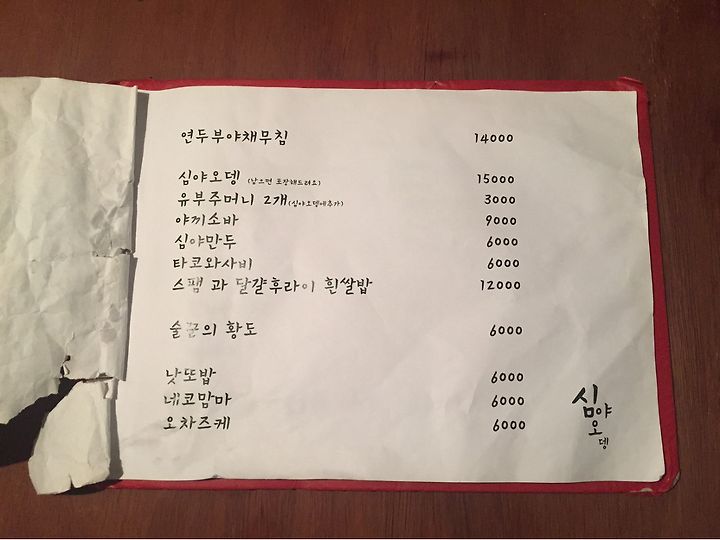 연두부야채무침 14000
심야오뎅 (남으면 포장해드려요) 15000
유부주머니 2개 (심야오뎅에추가) 3000
야끼소바 9000
심야만두 6000
타코와사비 6000
스팸 과 달걀후라이 흰쌀밥 12000
술꾼의 황도 6000
낫또밥 6000
네코맘마 6000
오차즈케 6000
심야
오
뎅